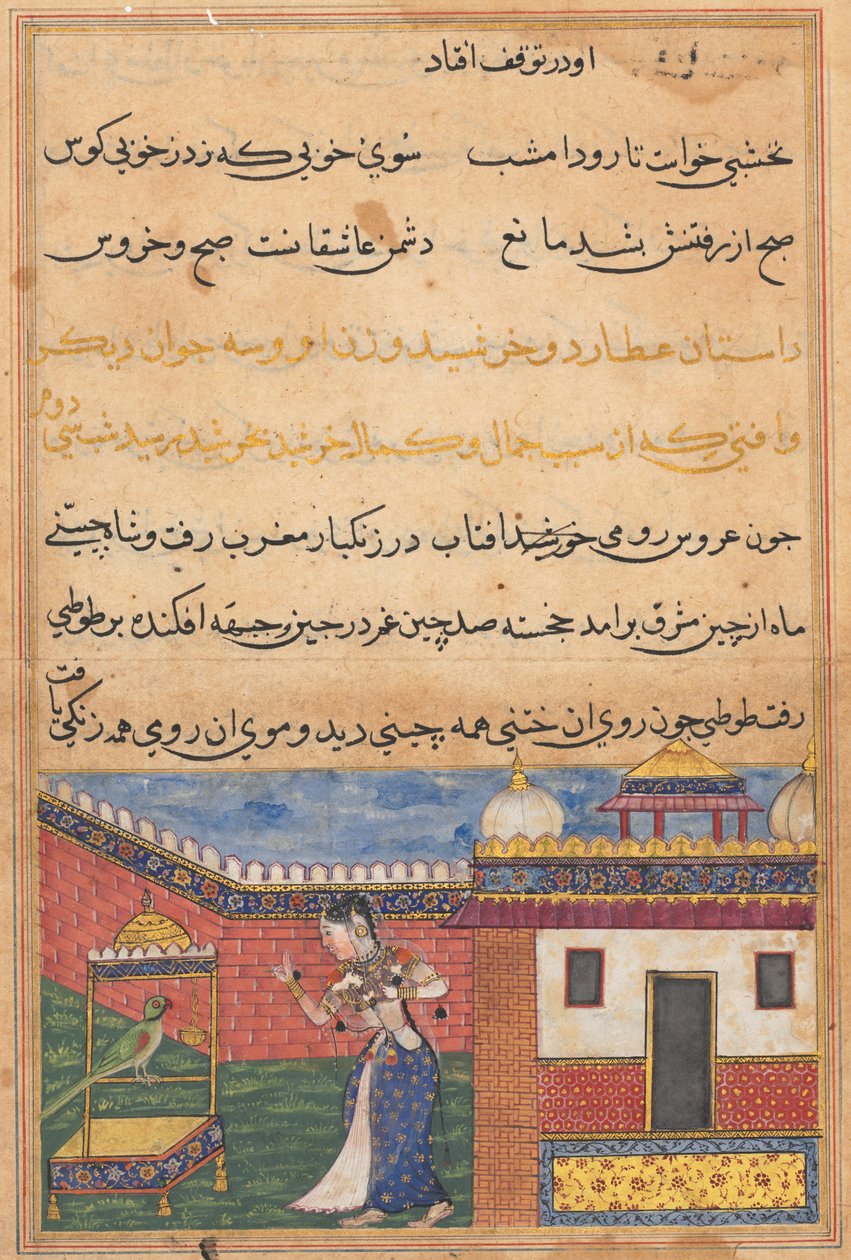 او در توقف افتاد
نخشبي خواست تا رود امشب سُوي خوبي كه زد ز خوبي كوس
صبح از رفتنش بشد مانع دشمن عاشقانست صبح و خروس
داستان عطارد و خرشيد و زن او و سه جوان ديكر
وافتي كه از سبب جمال و كمال خرشيد بخرشيد رسيد شب سي دوم
جون عروس رومي خورشيد افتاب در زنكبار مغرب رفت و شاه چيني
ماه از چين مشرق برامد خجسته صد چين غم در جبين و جبهه افكنده بر طوطي
رفت طوطي جون روي ان ختني همه چيني ديد و موي ان رومي همه زنكي يافت